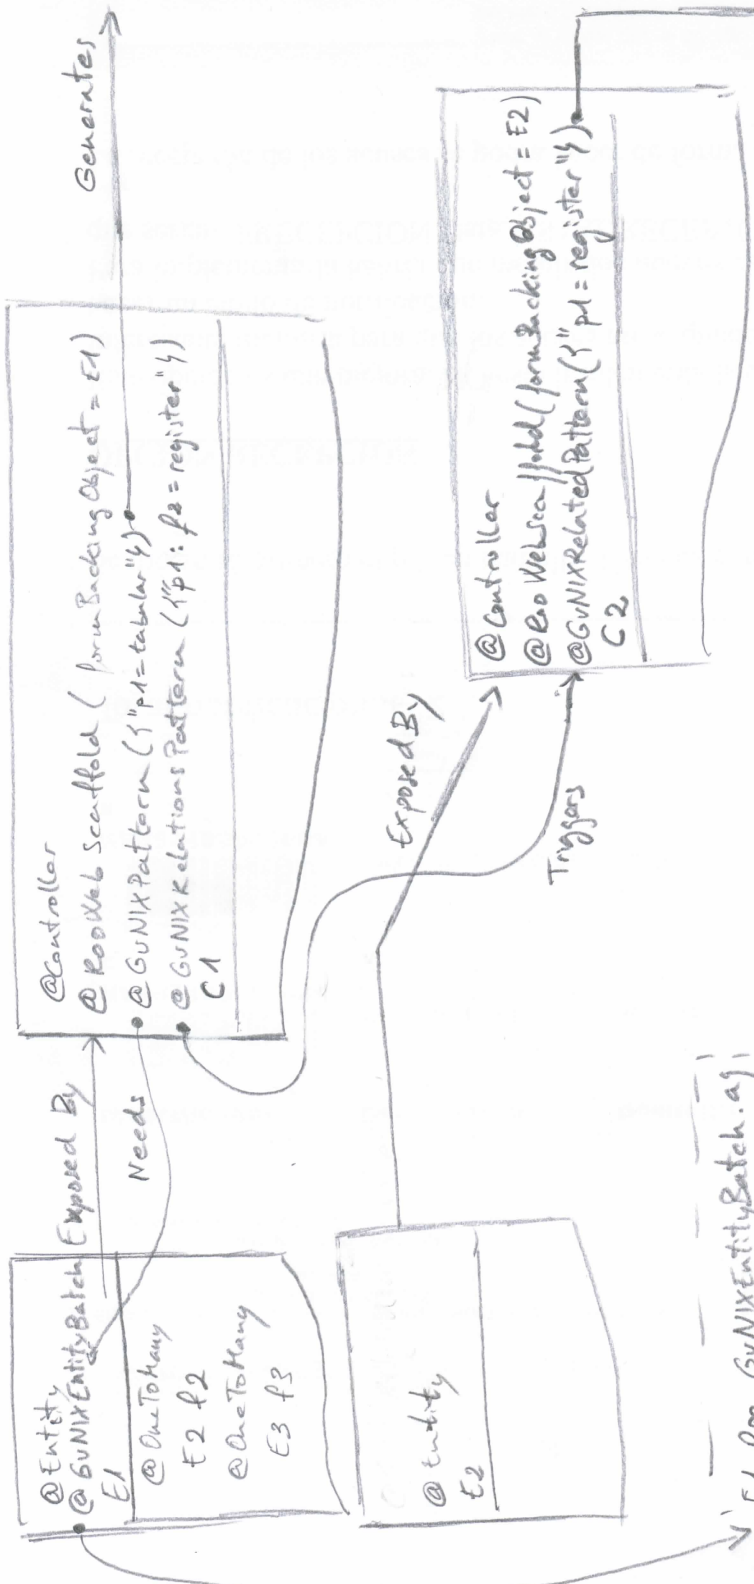 @Entity
@GvNIXEntityBatch
E1
@OneToMany
E2 f2
@OneToMany
E3 f3
Exposed By
Needs
@Controller
@RooWebScaffold(formBackingObject=E1)
@GvNIXPattern({"p1=tabular"})
@GvNIXRelationsPattern({"p1: f2=register"})
C1
Generates
@Entity
E2
Exposed By
Triggers
@Controller
@RooWebScaffold(formBackingObject=E2)
@GvNIXRelatedPattern({"p1=register"})
C2
E1_Roo_GvNIXEntityBatch.aj